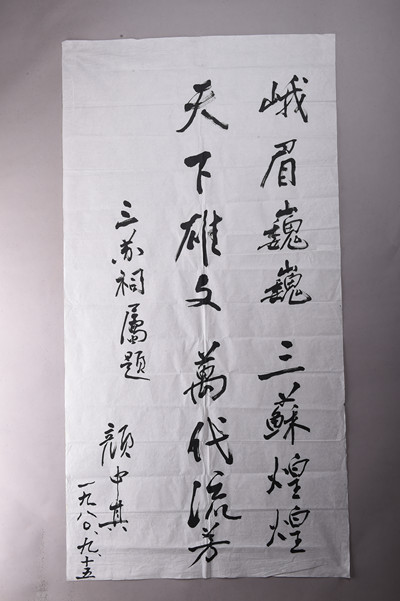 峨眉巍巍三蘇煌煌
天下雄文萬代流芳
三苏祠属題
顔中其
一九八〇、九、十五